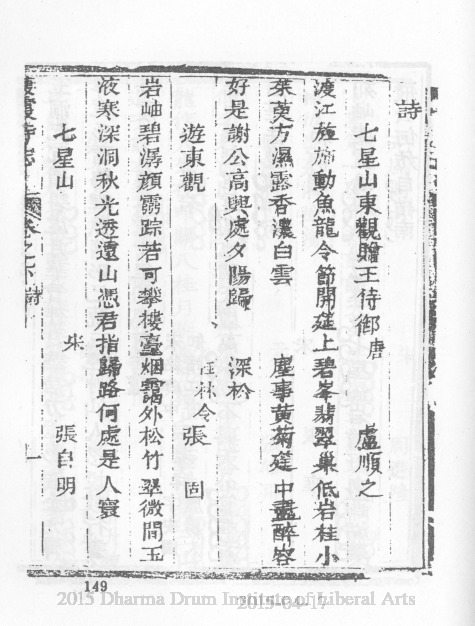 詩
七星山東觀贈王待御 唐 盧順之
渡江旌旆動魚龍令節開筵上碧峯翡翠巢低岩桂小
茱萸方濕露香濃白雲 塵事黃菊筵中盡醉容
好是謝公高興處夕陽歸 深松
遊東觀 林令張 固
岩岫碧潺顏靈踪若可攀樓臺烟靄外松竹翠微間玉
液寒深洞秋光透遠山憑君指歸路何處是人寰
七星山 宋 張自明
棲霞寺志 卷之下 詩 一
149
2015 Dharma Drum Institute of Liberal Arts
2015-04-17